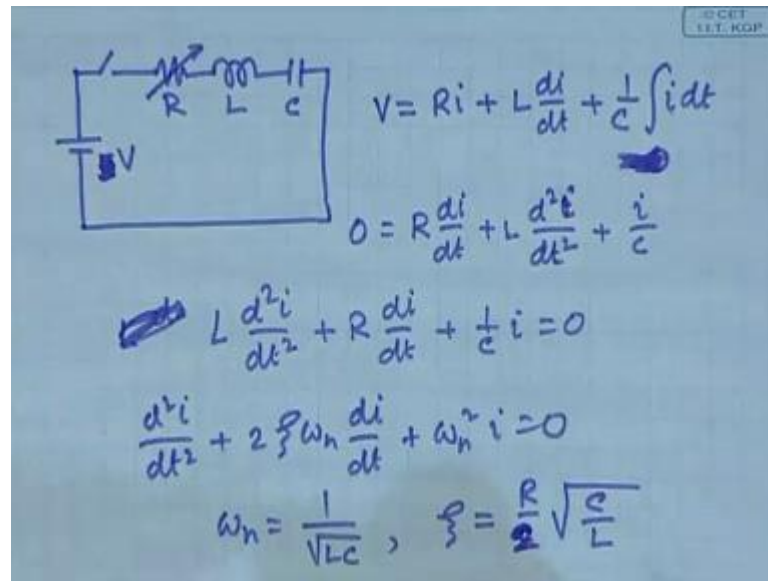 © CET
I.I.T. KGP
R L C
V
V = Ri + L di/dt + 1/C ∫ i dt
0 = R di/dt + L d²i/dt² + i/C
L d²i/dt² + R di/dt + 1/C i = 0
d²i/dt² + 2ξωₙ di/dt + ωₙ² i = 0
ωₙ = 1/√LC , ξ = R/2 √C/L